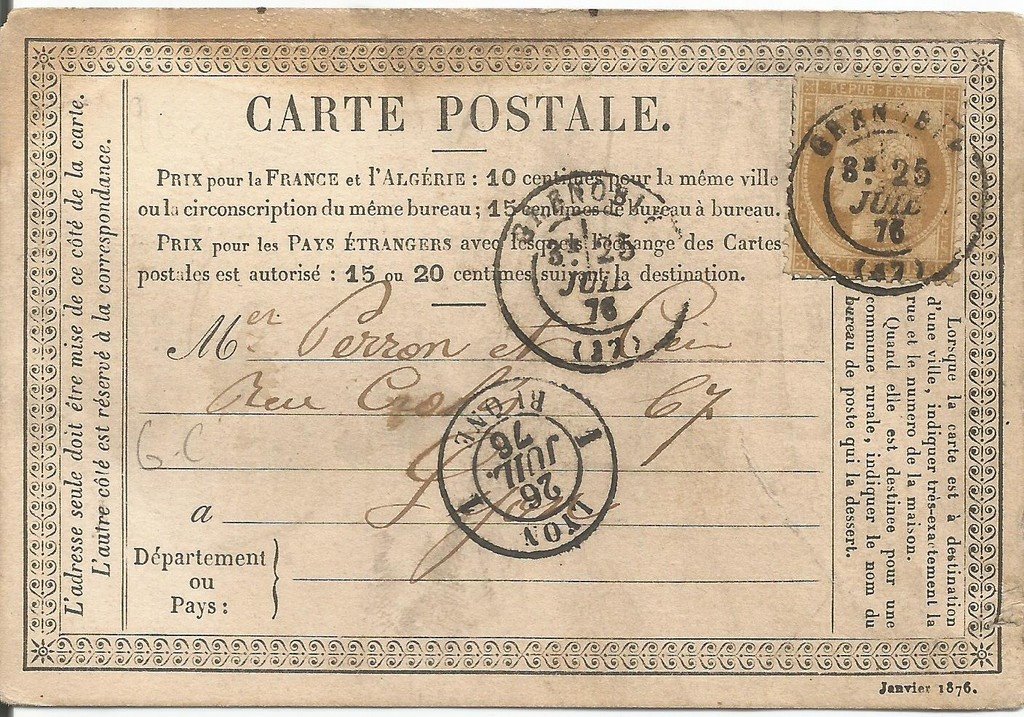 CARTE POSTALE.
PRIX pour la FRANCE et l'ALGÉRIE : 10 centimes pour la même ville
ou la circonscription du même bureau ; 15 centimes de bureau à bureau.
PRIX pour les PAYS ÉTRANGERS avec lesquels l'échange des Cartes
postales est autorisé : 15 ou 20 centimes suivant la destination.
REPUB. FRANC.
GRENOBLE
3E 25
JUIL
76
(37)
GRENOBLE
3E 25
JUIL
76
(37)
Mer Perron et
Rue 67
Lyon
G.C
a
Département
ou
Pays :
LYON
RHONE
1
1
26
JUIL.
76
L'adresse seule doit être mise de ce côté de la carte.
L'autre côté est réservé à la correspondance.
Lorsque la carte est à destination
d'une ville, indiquer très-exactement la
rue et le numero de la maison.
Quand elle est destinée pour une
commune rurale, indiquer le nom du
bureau de poste qui la dessert.
Janvier 1876.